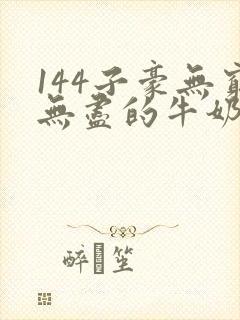 144子豪無窮
無盡的牛奶
醉笙